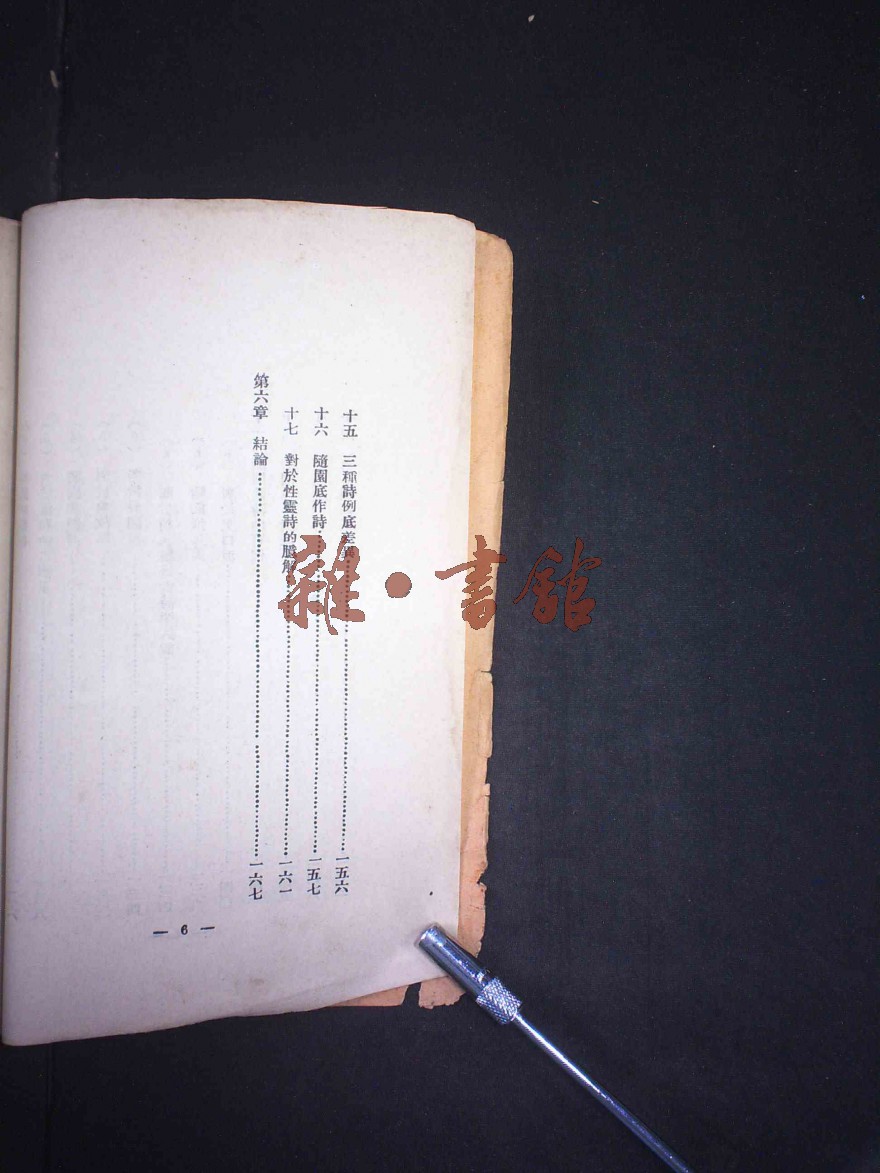 十五 三種詩例底差異……一五六
十六 隨園底作詩……一五七
十七 對於性靈詩的臆解……一六一
第六章 結論……一六七
— 6 —
雜·書館